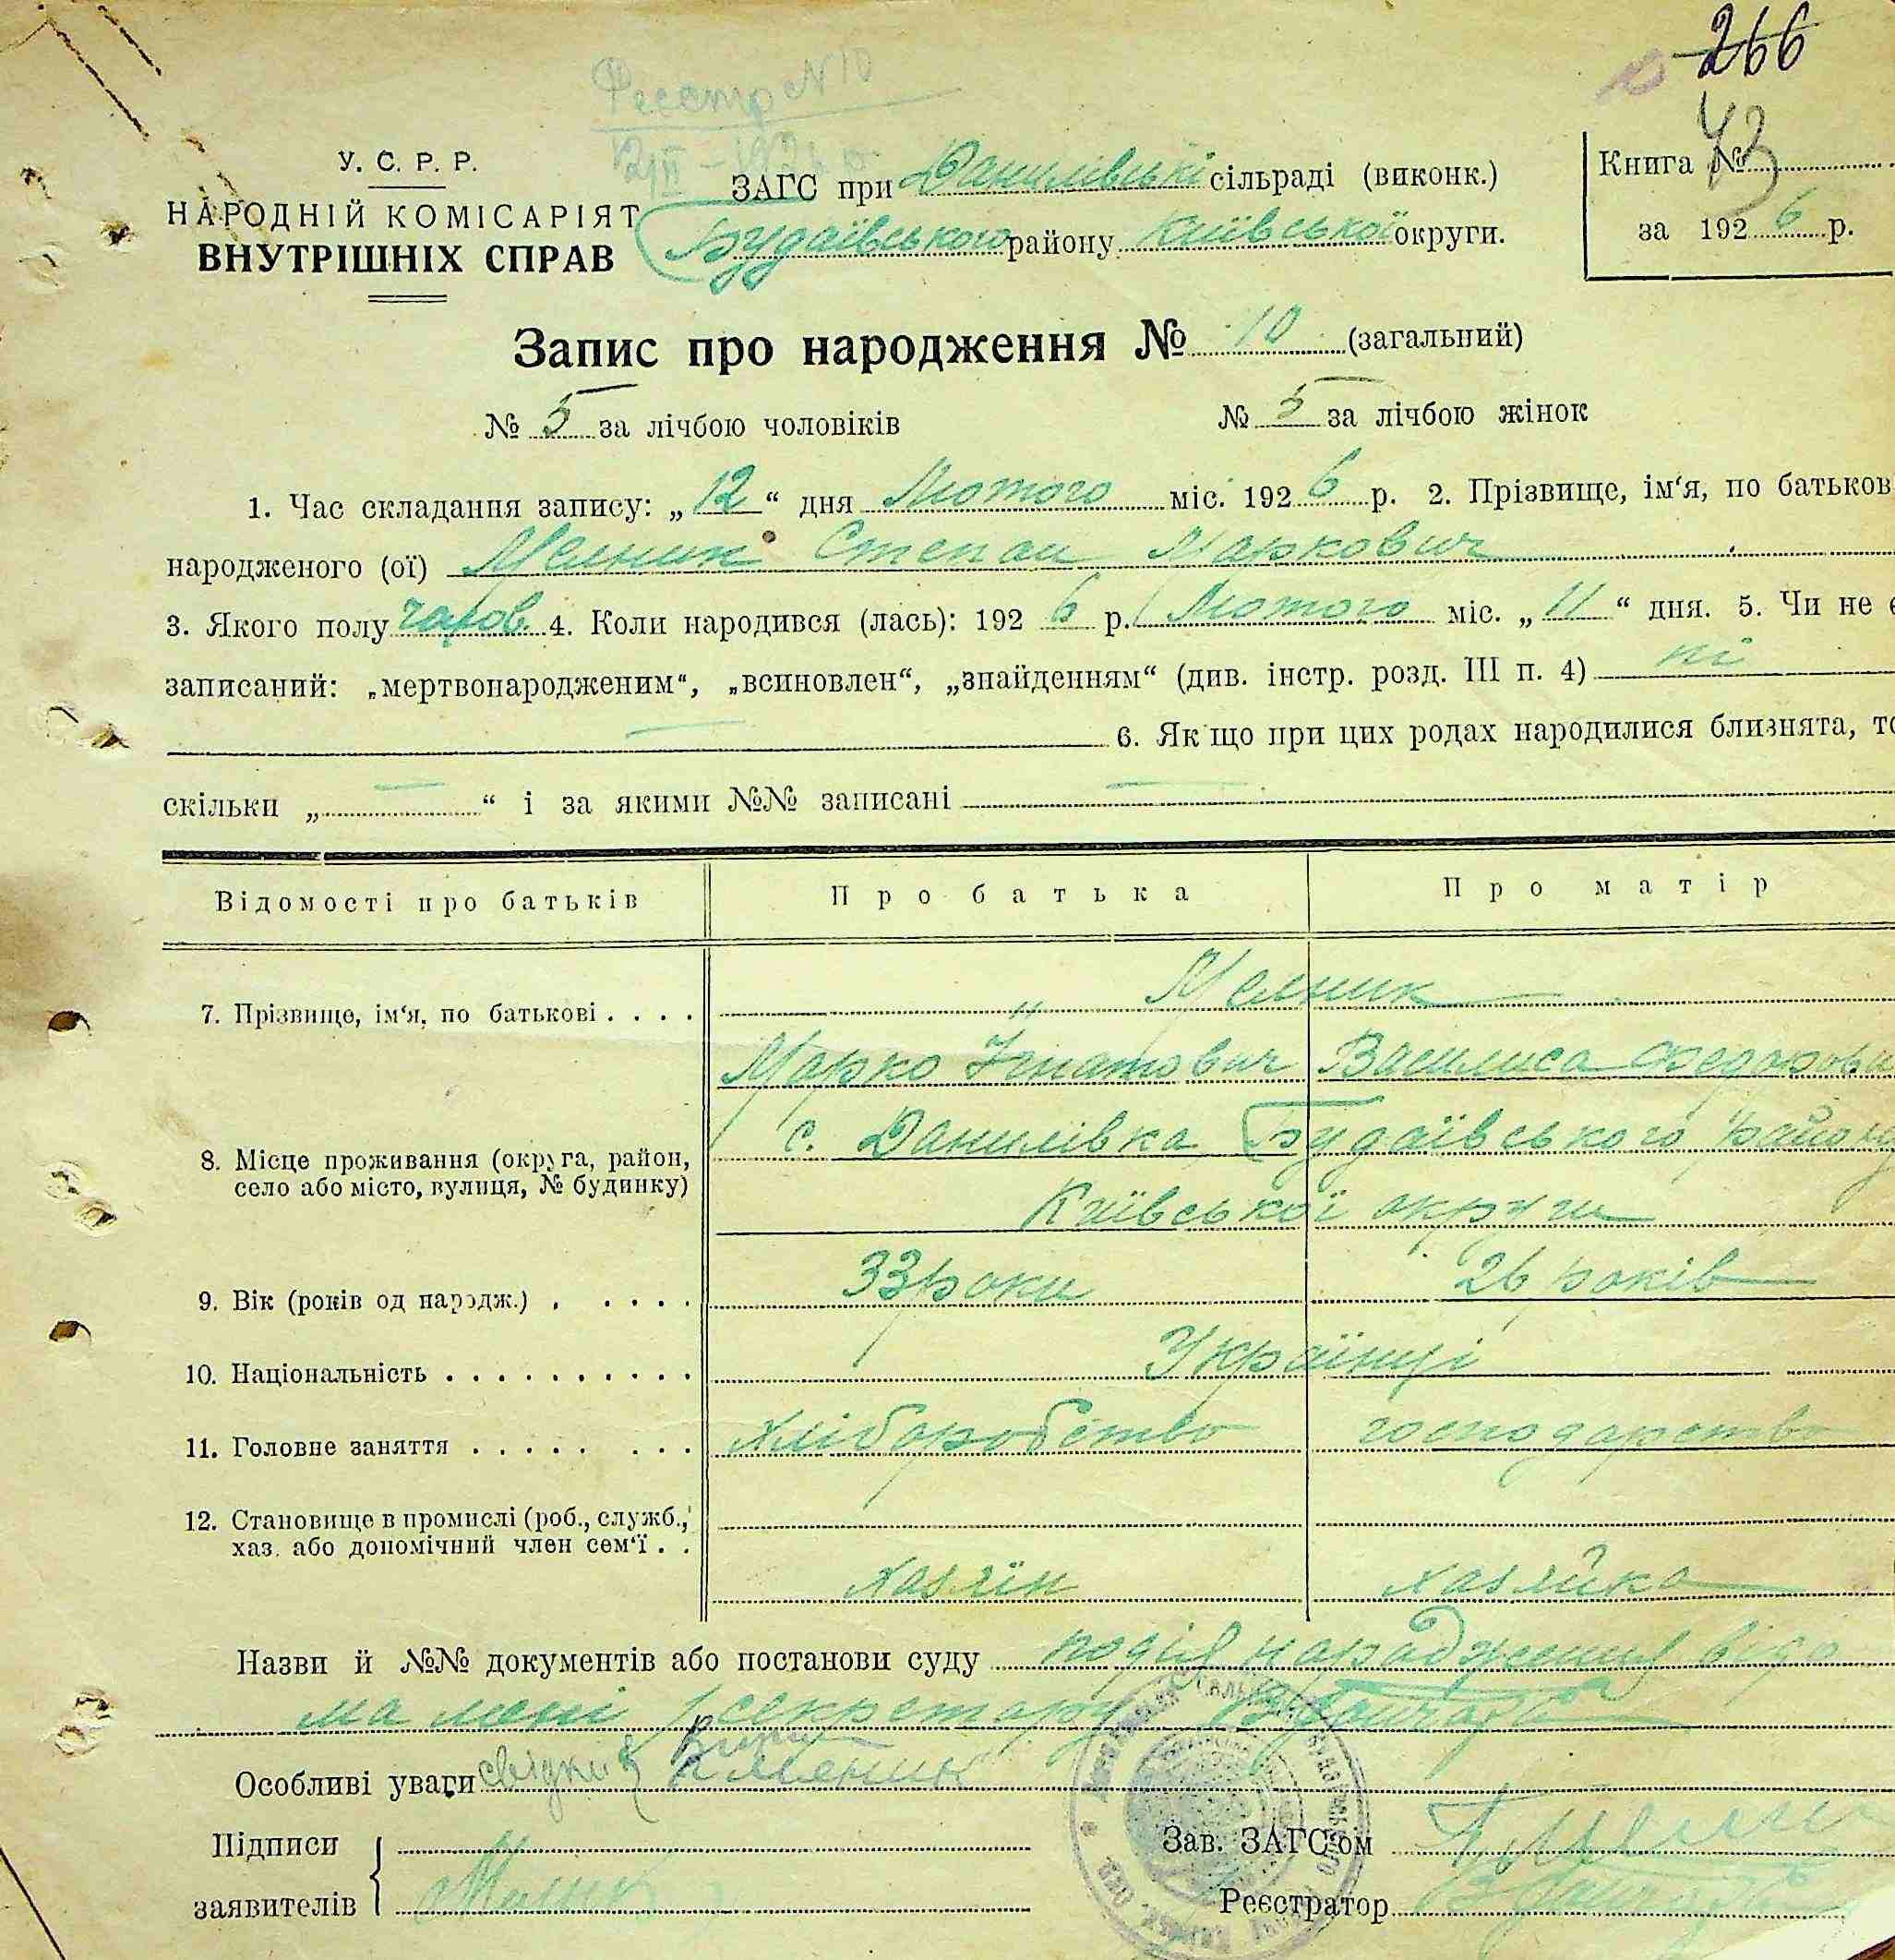 266
Реєстр № 10
43
У. С. Р. Р.
НАРОДНІЙ КОМІСАРІЯТ
ВНУТРІШНІХ СПРАВ
ЗАГС при Данилівські сільраді (виконк.)
Будаївського району Київської округи.
Книга №
за 1926 р.
Запис про народження № 10 (загальний)
№ 5 за лічбою чоловіків № 5 за лічбою жінок
1. Час складання запису: „12“ дня Лютого міс. 1926 р. 2. Прізвище, ім‘я, по батьков
народженого (ої) Мелник Степан Маркович
3. Якого полу чолов. 4. Коли народився (лась): 1926 р. Лютого міс. „11“ дня. 5. Чи не є
записаний: „мертвонародженим“, „всиновлен“, „знайденням“ (див. інстр. розд. III п. 4) ні
6. Якщо при цих родах народилися близнята, то
скільки „ “ і за якими №№ записані
Відомості про батьків Про батька Про матір
7. Прізвище, ім‘я, по батькові . . . . Мелник
Марко Ігнатович Василиса Федоровна
8. Місце проживання (округа, район, с. Данилівка Будаївського району
село або місто, вулиця, № будинку) Київської округи
9. Вік (років од народж.) . . . . . 33 роки 26 років
10. Національність . . . . . . . . . . Українці
11. Головне заняття . . . . . . . . Хліборобство господарство
12. Становище в промислі (роб., служб.,
хаз. або допомічний член сем‘ї . . хазяїн хазяйка
Назви й №№ документів або постанови суду подія народження відо
ма мені секретарь
Особливі уваги свідки Мелник
Підписи
заявителів Мелник
Зав. ЗАГС‘ом
Реєстратор